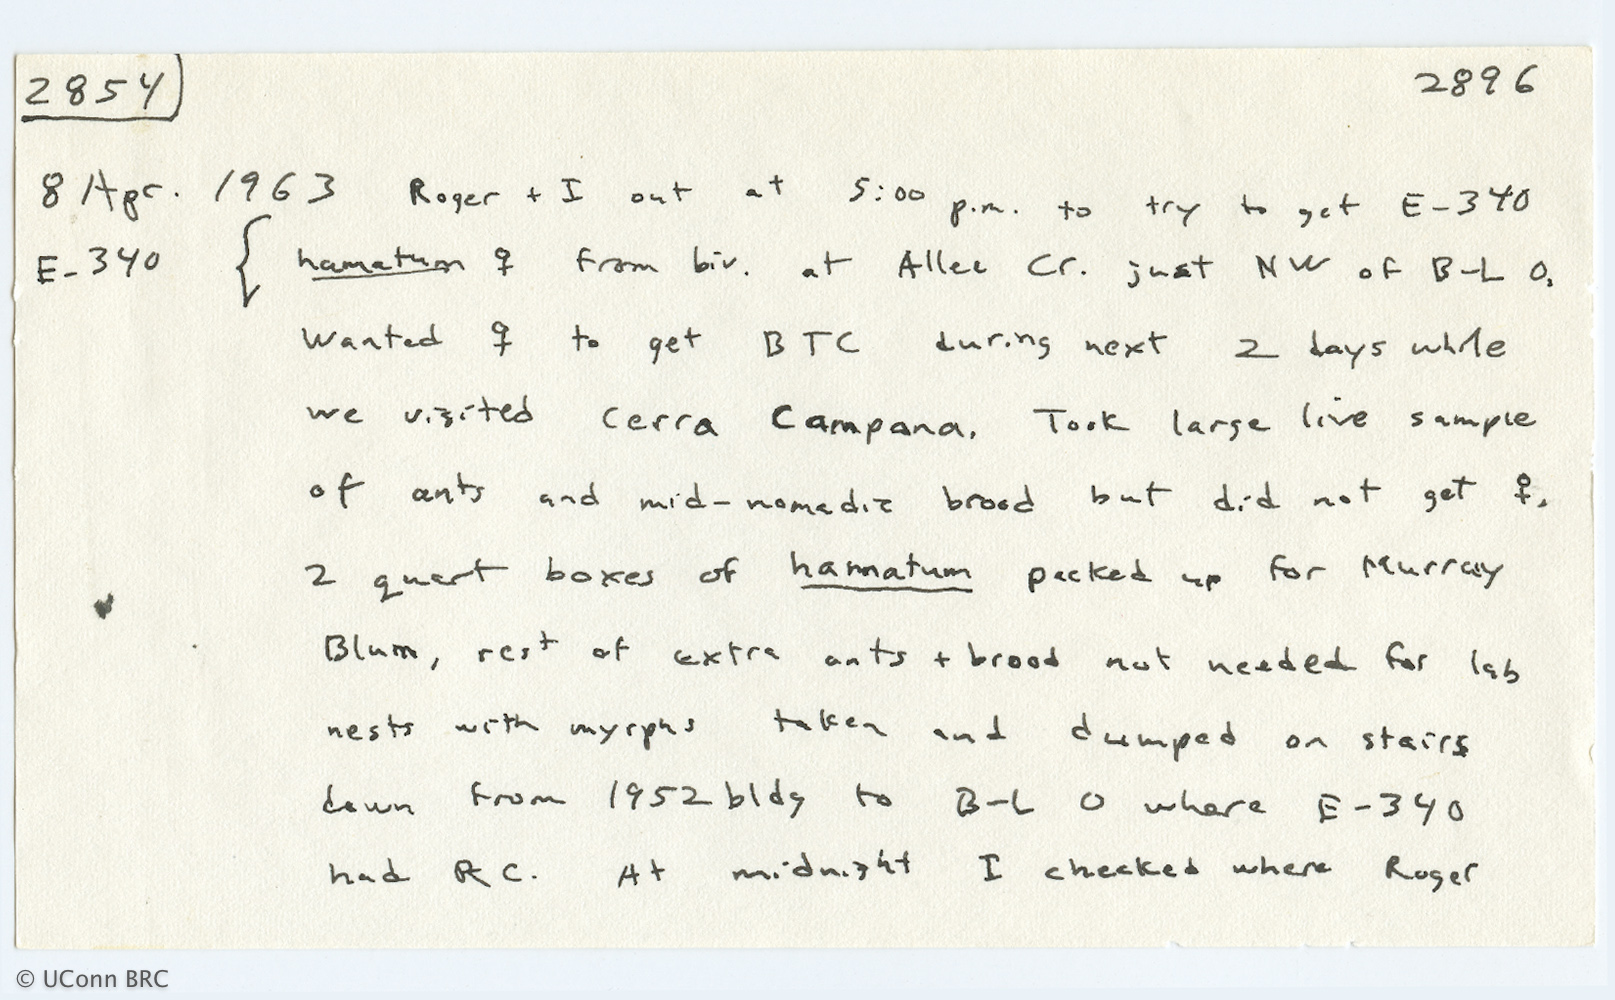 2854 2896
8 Apr. 1963 Roger + I out at 5:00 p.m. to try to get E-340
E-340 { hamatum ♀ from biv. at Allee Cr. just NW of B-L O.
Wanted ♀ to get BTC during next 2 days while
we visited Cerra Campana. Took large live sample
of ants and mid-nomadic brood but did not get ♀.
2 quart boxes of hamatum packed up for Murray
Blum, rest of extra ants + brood not needed for lab
nests with myrphs taken and dumped on stairs
down from 1952 bldg to B-L O where E-340
had RC. At midnight I checked where Roger
© UConn BRC